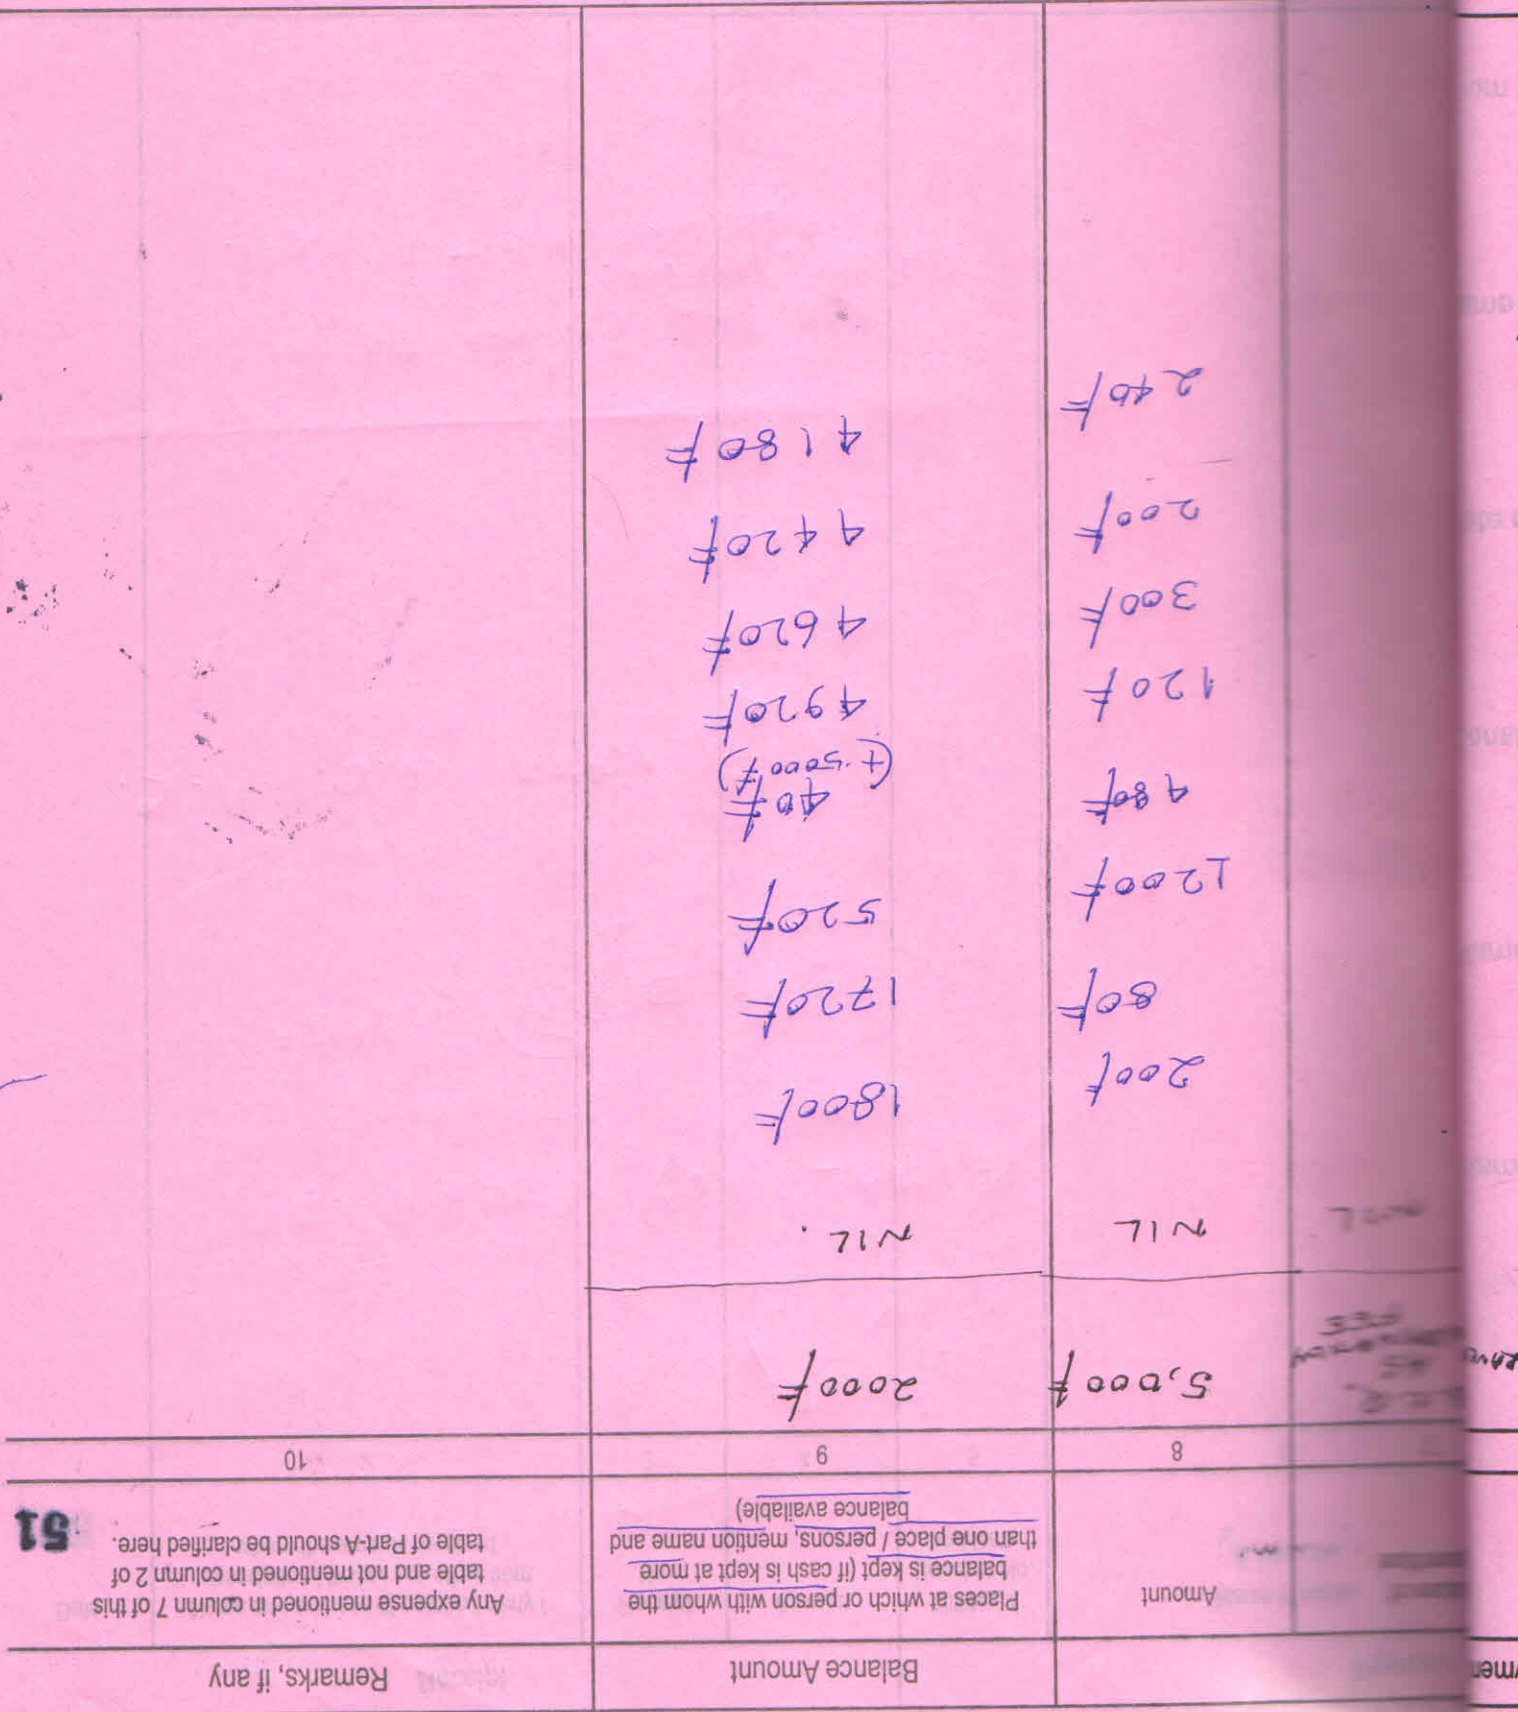 Balance Amount
Remarks, if any
Amount
Places at which or person with whom the
balance is kept (if cash is kept at more
than one place / persons, mention name and
balance available)
Any expense mentioned in column 7 of this
table and not mentioned in column 2 of
table of Part-A should be clarified here.
51
8 9 10
5,000/= 2000/=
NIL NIL.
200/= 1800/=
80/= 1720/=
1200/= 520/=
480/= 40/=
(+5000/=)
120/= 4920/=
300/= 4620/=
200/= 4420/=
240/= 4180/=